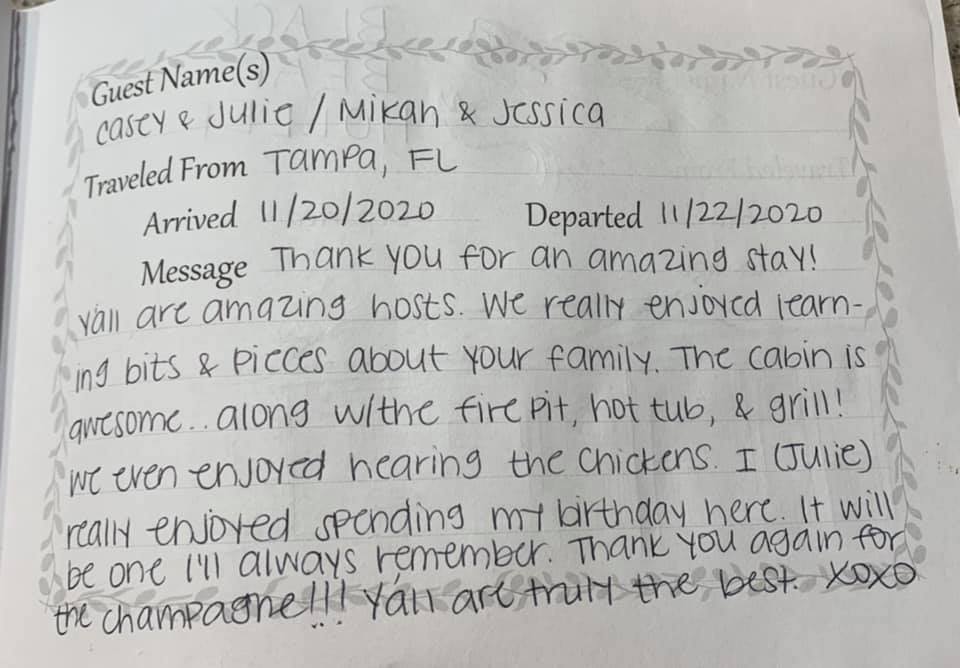 Guest Name(s)
Casey & Julie / Mikah & Jessica
Traveled From Tampa, FL
Arrived 11/20/2020 Departed 11/22/2020
Message Thank you for an amazing stay!
y'all are amazing hosts. We really enjoyed learn-
ing bits & pieces about your family. The cabin is
awesome.. along w/the fire pit, hot tub, & grill!
we even enjoyed hearing the chickens. I (Julie)
really enjoyed spending my birthday here. It will
be one I'll always remember. Thank you again for
the champagne!!! Y'all are truly the best. XOXO